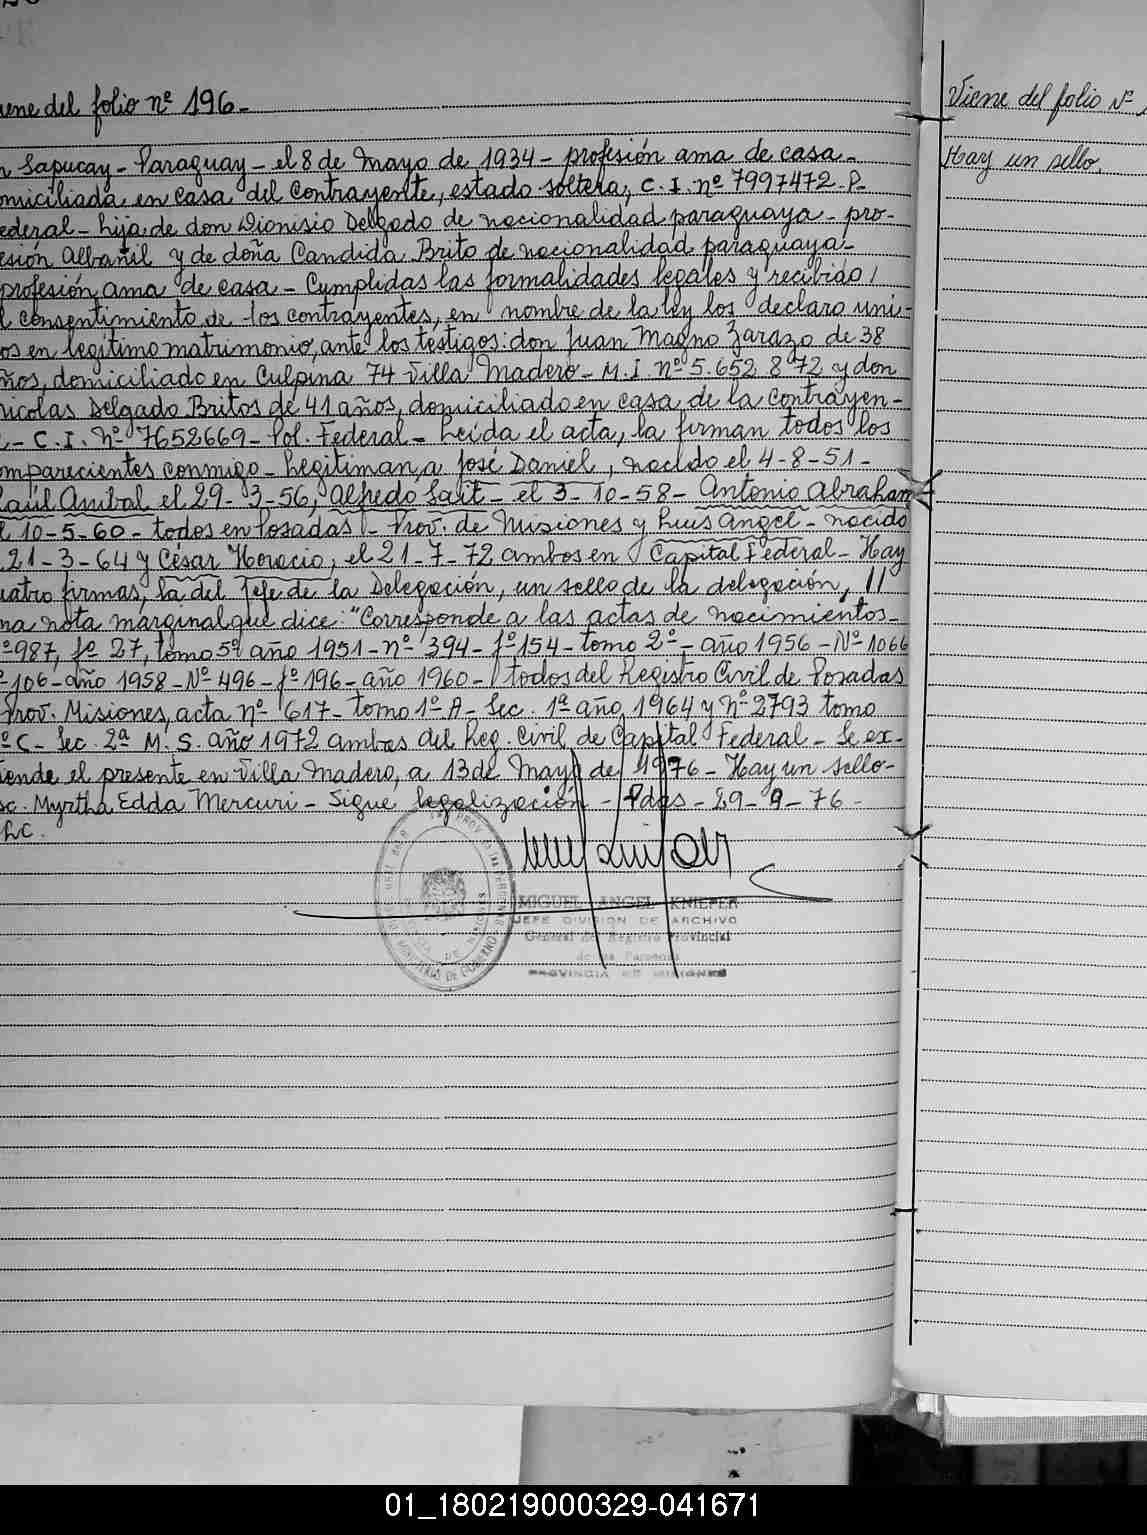 iene del folio nº 196-
n Sapucay - Paraguay - el 8 de Mayo de 1934 - profesión ama de casa -
omiciliada en casa del contrayente, estado soltera, C.I. nº 7997472 - P.
ederal - hija de don Dionisio Delgado de nacionalidad paraguaya - pro-
esión albañil y de doña Candida Brito de nacionalidad paraguaya -
profesión ama de casa - Cumplidas las formalidades legales y recibido /
l consentimiento de los contrayentes, en nombre de la ley los declaro uni-
os en legítimo matrimonio, ante los testigos: don Juan Magno Zarazo de 38
ños, domiciliado en Culpina 74 Villa Madero - M.I. nº 5.652.872 y don
icolas Delgado Britos de 41 años, domiciliado en casa de la contrayen-
- C.I. nº 7652669 - Pol. Federal - Leída el acta, la firman todos los
omparecientes conmigo - Legitiman a José Daniel, nacido el 4-8-51 -
aúl Anibal el 29-3-56, Alfredo Sait - el 3-10-58 - Antonio Abraham
l 10-5-60 - todos en Posadas - Prov. de Misiones y Luis Angel - nacido
21-3-64 y César Horacio, el 21-7-72 ambos en Capital Federal - Hay
uatro firmas, la del Jefe de la Delegación, un sello de la delegación, //
na nota marginal que dice: "Corresponde a las actas de nacimientos -
º 987, fº 27, tomo 5º año 1951 - nº 394 - fº 154 - tomo 2º - año 1956 - Nº 1066
º 106 - año 1958 - Nº 496 - fº 196 - año 1960 - todos del Registro Civil de Posadas
Prov. Misiones, acta nº 617 - tomo 1º A - Sec. 1ª año 1964 y nº 2793 tomo
º C - Sec. 2ª M.S. año 1972 ambas del Reg. Civil de Capital Federal - Se ex-
iende el presente en Villa Madero, a 13 de Mayo de 1976 - Hay un sello -
sc. Myrtha Edda Mercuri - Sigue legalización - Pdas - 29-9-76 -
hc.
MIGUEL ANGEL KNIEFER
JEFE DIVISION DE ARCHIVO
General del Registro Provincial
de las Personas
PROVINCIA DE MISIONES
MINISTERIO DE GOBIERNO
Viene del folio Nº
Hay un sello.
01_180219000329-041671